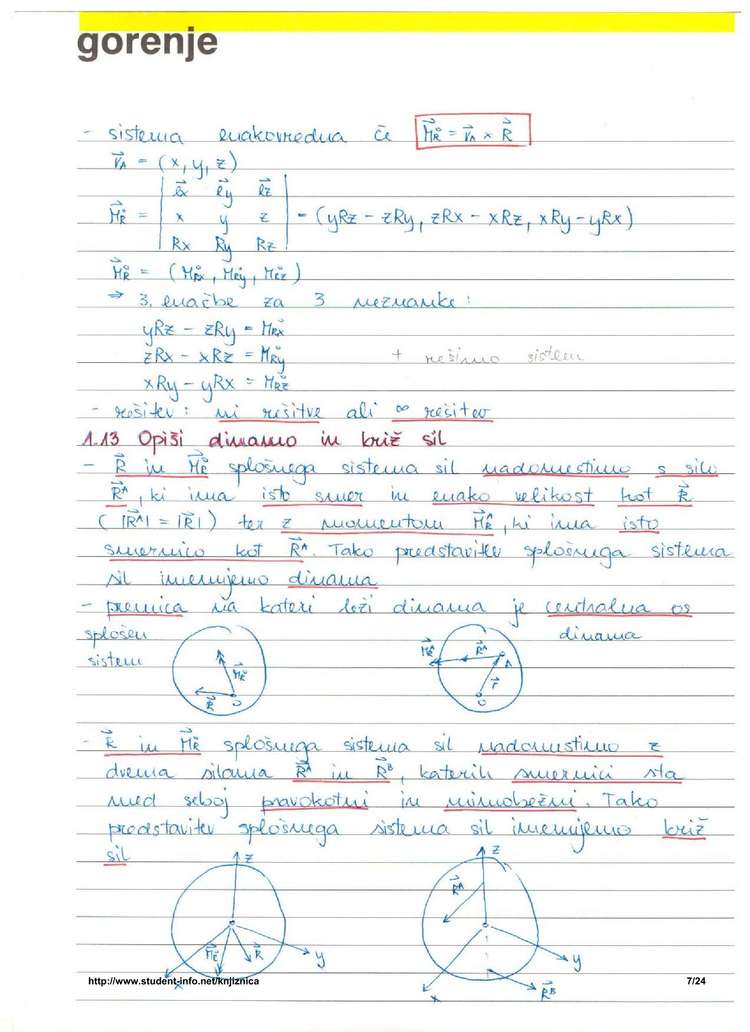 gorenje
- sistema enakovredna če M⃗R° = r⃗A × R⃗
r⃗A = (x, y, z)
e⃗x e⃗y e⃗z
M⃗R° = | x y z | = (yRz - zRy, zRx - xRz, xRy - yRx)
Rx Ry Rz
M⃗R° = (MRx°, MRy°, MRz°)
⇒ 3. enačbe za 3 neznanke:
yRz - zRy = MRx°
zRx - xRz = MRy° + rešimo sistem
xRy - yRx = MRz°
- rešitev: ni rešitve ali ∞ rešitev
1.13 Opiši dinamo in križ sil
- R⃗ in M⃗R° splošnega sistema sil nadomestimo s silo
R⃗ᴬ, ki ima isto smer in enako velikost kot R⃗
(|R⃗ᴬ| = |R⃗|) ter z momentom M⃗Rᴬ, ki ima isto
smernico kot R⃗ᴬ. Tako predstavitev splošnega sistema
sil imenujemo dinama
- premica na kateri leži dinama je centralna os
splošen dinama
sistem
M⃗R° R⃗ O
M⃗Rᴬ R⃗ᴬ A r⃗ O
- R⃗ in M⃗R° splošnega sistema sil nadomestimo z
dvema silama R⃗ᴬ in R⃗ᴮ, katerih smernici sta
med seboj pravokotni in mimobežni. Tako
predstavitev splošnega sistema sil imenujemo križ
sil
z M⃗R° R⃗ y x
z R⃗ᴬ y x R⃗ᴮ
http://www.student-info.net/knjiznica 7/24